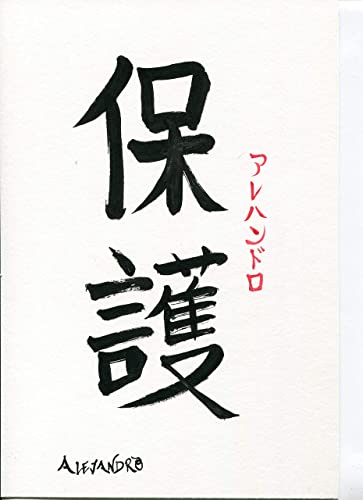 保護
アレハンドロ
ALEJANDRO